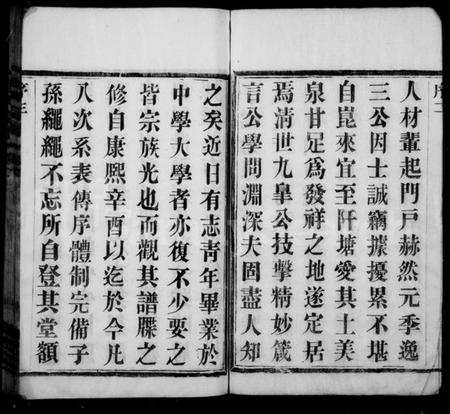 序二
人材輩起門戸赫然元季逸
三公因士誠竊據擾累不堪
自崑來宜至阡塘愛其土美
泉甘足爲發祥之地遂定居
焉清世九臯公技擊精妙箴
言公學問淵深夫固盡人知
之矣近日有志靑年畢業於
中學大學者亦復不少要之
皆宗族光也而觀其譜牒之
修自康熙辛酉以迄於今凡
八次系表傳序體制完備子
孫繩繩不忘所自登其堂額
序三